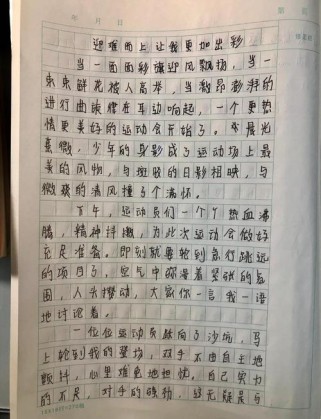 年 月 日
迎难而上让我更加出彩
当一面面彩旗迎风飘扬,当一
束束鲜花被人高举,当激昂澎湃的
进行曲旋律在耳边响起,一个更热
情更美好的运动会开始了。晨光
熹微,少年的身影成了运动场上最
美的风物,与斑驳的日影相映,与
微暖的清风撞了个满怀。
下午,运动员们一个个热血沸
腾,精神抖擞,为此次运动会做好
充足准备。即刻就要轮到急行跳远
的项目了,空气中弥漫着紧张的氛
围,人头攒动,大家你一言我一语
地讨论着。
一位位运动员跃向了沙坑,马
上轮到我的登场,对手不由自主地
颤抖,心里难免地担忧。自己实力
的不足,对手的强劲,毫无疑是与